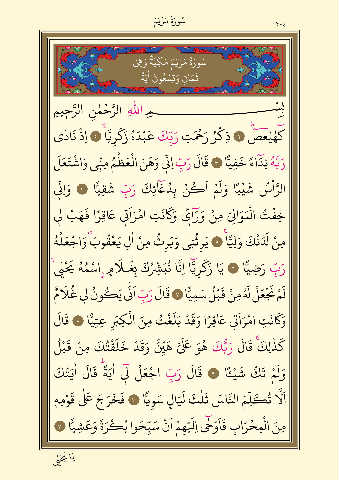 سُورَةُ مَرْيَمَ
سُورَةُ مَرْيَمَ مَكِّيَّةٌ وَهِيَ
ثَمَانٍ وَتِسْعُونَ اٰيَةً
بِسْمِ اللهِ الرَّحْمٰنِ الرَّحِيمِ
كٓهٰيٰعٓصٓ ذِكْرُ رَحْمَتِ رَبِّكَ عَبْدَهُ زَكَرِيَّا اِذْ نَادٰى
رَبَّهُ نِدَٓاءً خَفِيًّا قَالَ رَبِّ اِنّ۪ي وَهَنَ الْعَظْمُ مِنّ۪ي وَاشْتَعَلَ
الرَّأْسُ شَيْبًا وَلَمْ اَكُنْ بِدُعَٓائِكَ رَبِّ شَقِيًّا وَاِنّ۪ي
خِفْتُ الْمَوَالِيَ مِنْ وَرَٓاء۪ي وَكَانَتِ امْرَاَت۪ي عَاقِرًا فَهَبْ ل۪ي
مِنْ لَدُنْكَ وَلِيًّا يَرِثُن۪ي وَيَرِثُ مِنْ اٰلِ يَعْقُوبَ وَاجْعَلْهُ
رَبِّ رَضِيًّا يَا زَكَرِيَّٓا اِنَّا نُبَشِّرُكَ بِغُلَامٍ اسْمُهُ يَحْيٰى
لَمْ نَجْعَلْ لَهُ مِنْ قَبْلُ سَمِيًّا قَالَ رَبِّ اَنّٰى يَكُونُ ل۪ي غُلَامٌ
وَكَانَتِ امْرَاَت۪ي عَاقِرًا وَقَدْ بَلَغْتُ مِنَ الْكِبَرِ عِتِيًّا قَالَ
كَذٰلِكَ قَالَ رَبُّكَ هُوَ عَلَيَّ هَيِّنٌ وَقَدْ خَلَقْتُكَ مِنْ قَبْلُ
وَلَمْ تَكُ شَيْئًا قَالَ رَبِّ اجْعَلْ ل۪ٓي اٰيَةً قَالَ اٰيَتُكَ
اَلَّا تُكَلِّمَ النَّاسَ ثَلٰثَ لَيَالٍ سَوِيًّا فَخَرَجَ عَلٰى قَوْمِه۪
مِنَ الْمِحْرَابِ فَاَوْحٰٓى اِلَيْهِمْ اَنْ سَبِّحُوا بُكْرَةً وَعَشِيًّا
يَا يَحْيٰى